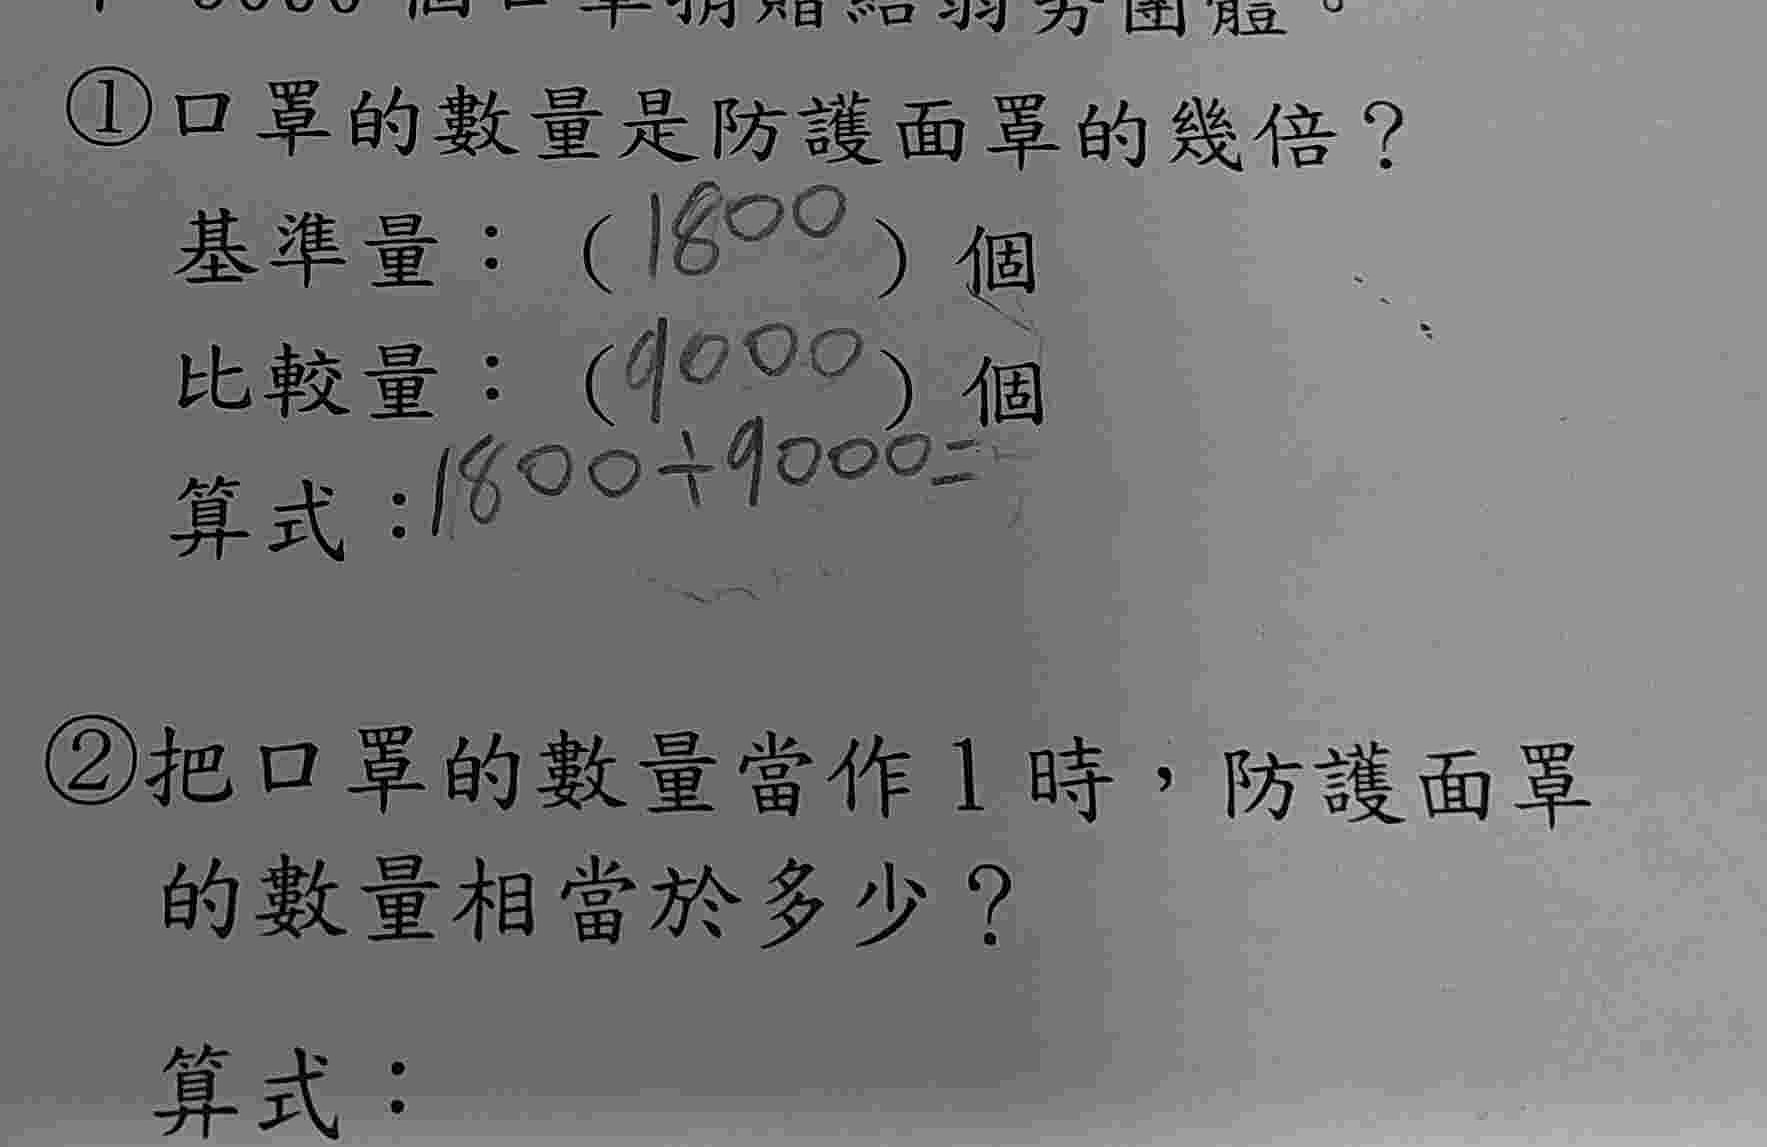 個口罩捐贈給弱勢團體。
①口罩的數量是防護面罩的幾倍？
基準量：（1800）個
比較量：（9000）個
算式：1800÷9000=
②把口罩的數量當作1時，防護面罩
的數量相當於多少？
算式：